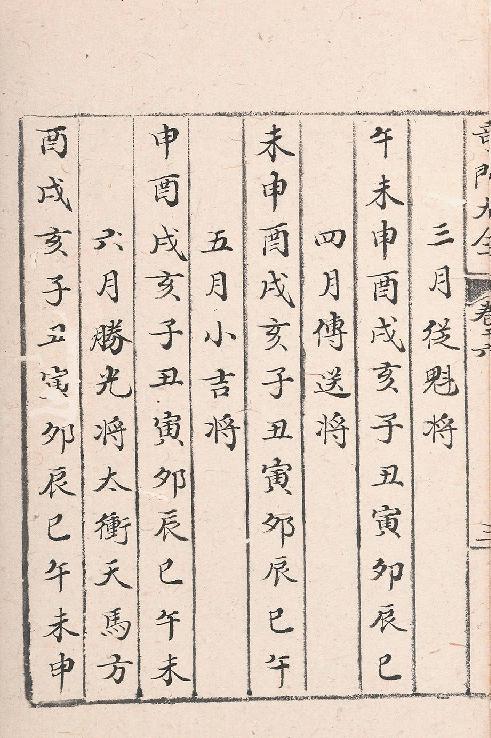 奇門大全 卷六 三
三月從魁將
午未申酉戌亥子丑寅卯辰巳
四月傳送將
未申酉戌亥子丑寅卯辰巳午
五月小吉將
申酉戌亥子丑寅卯辰巳午未
六月勝光將太衝天馬方
酉戌亥子丑寅卯辰巳午未申